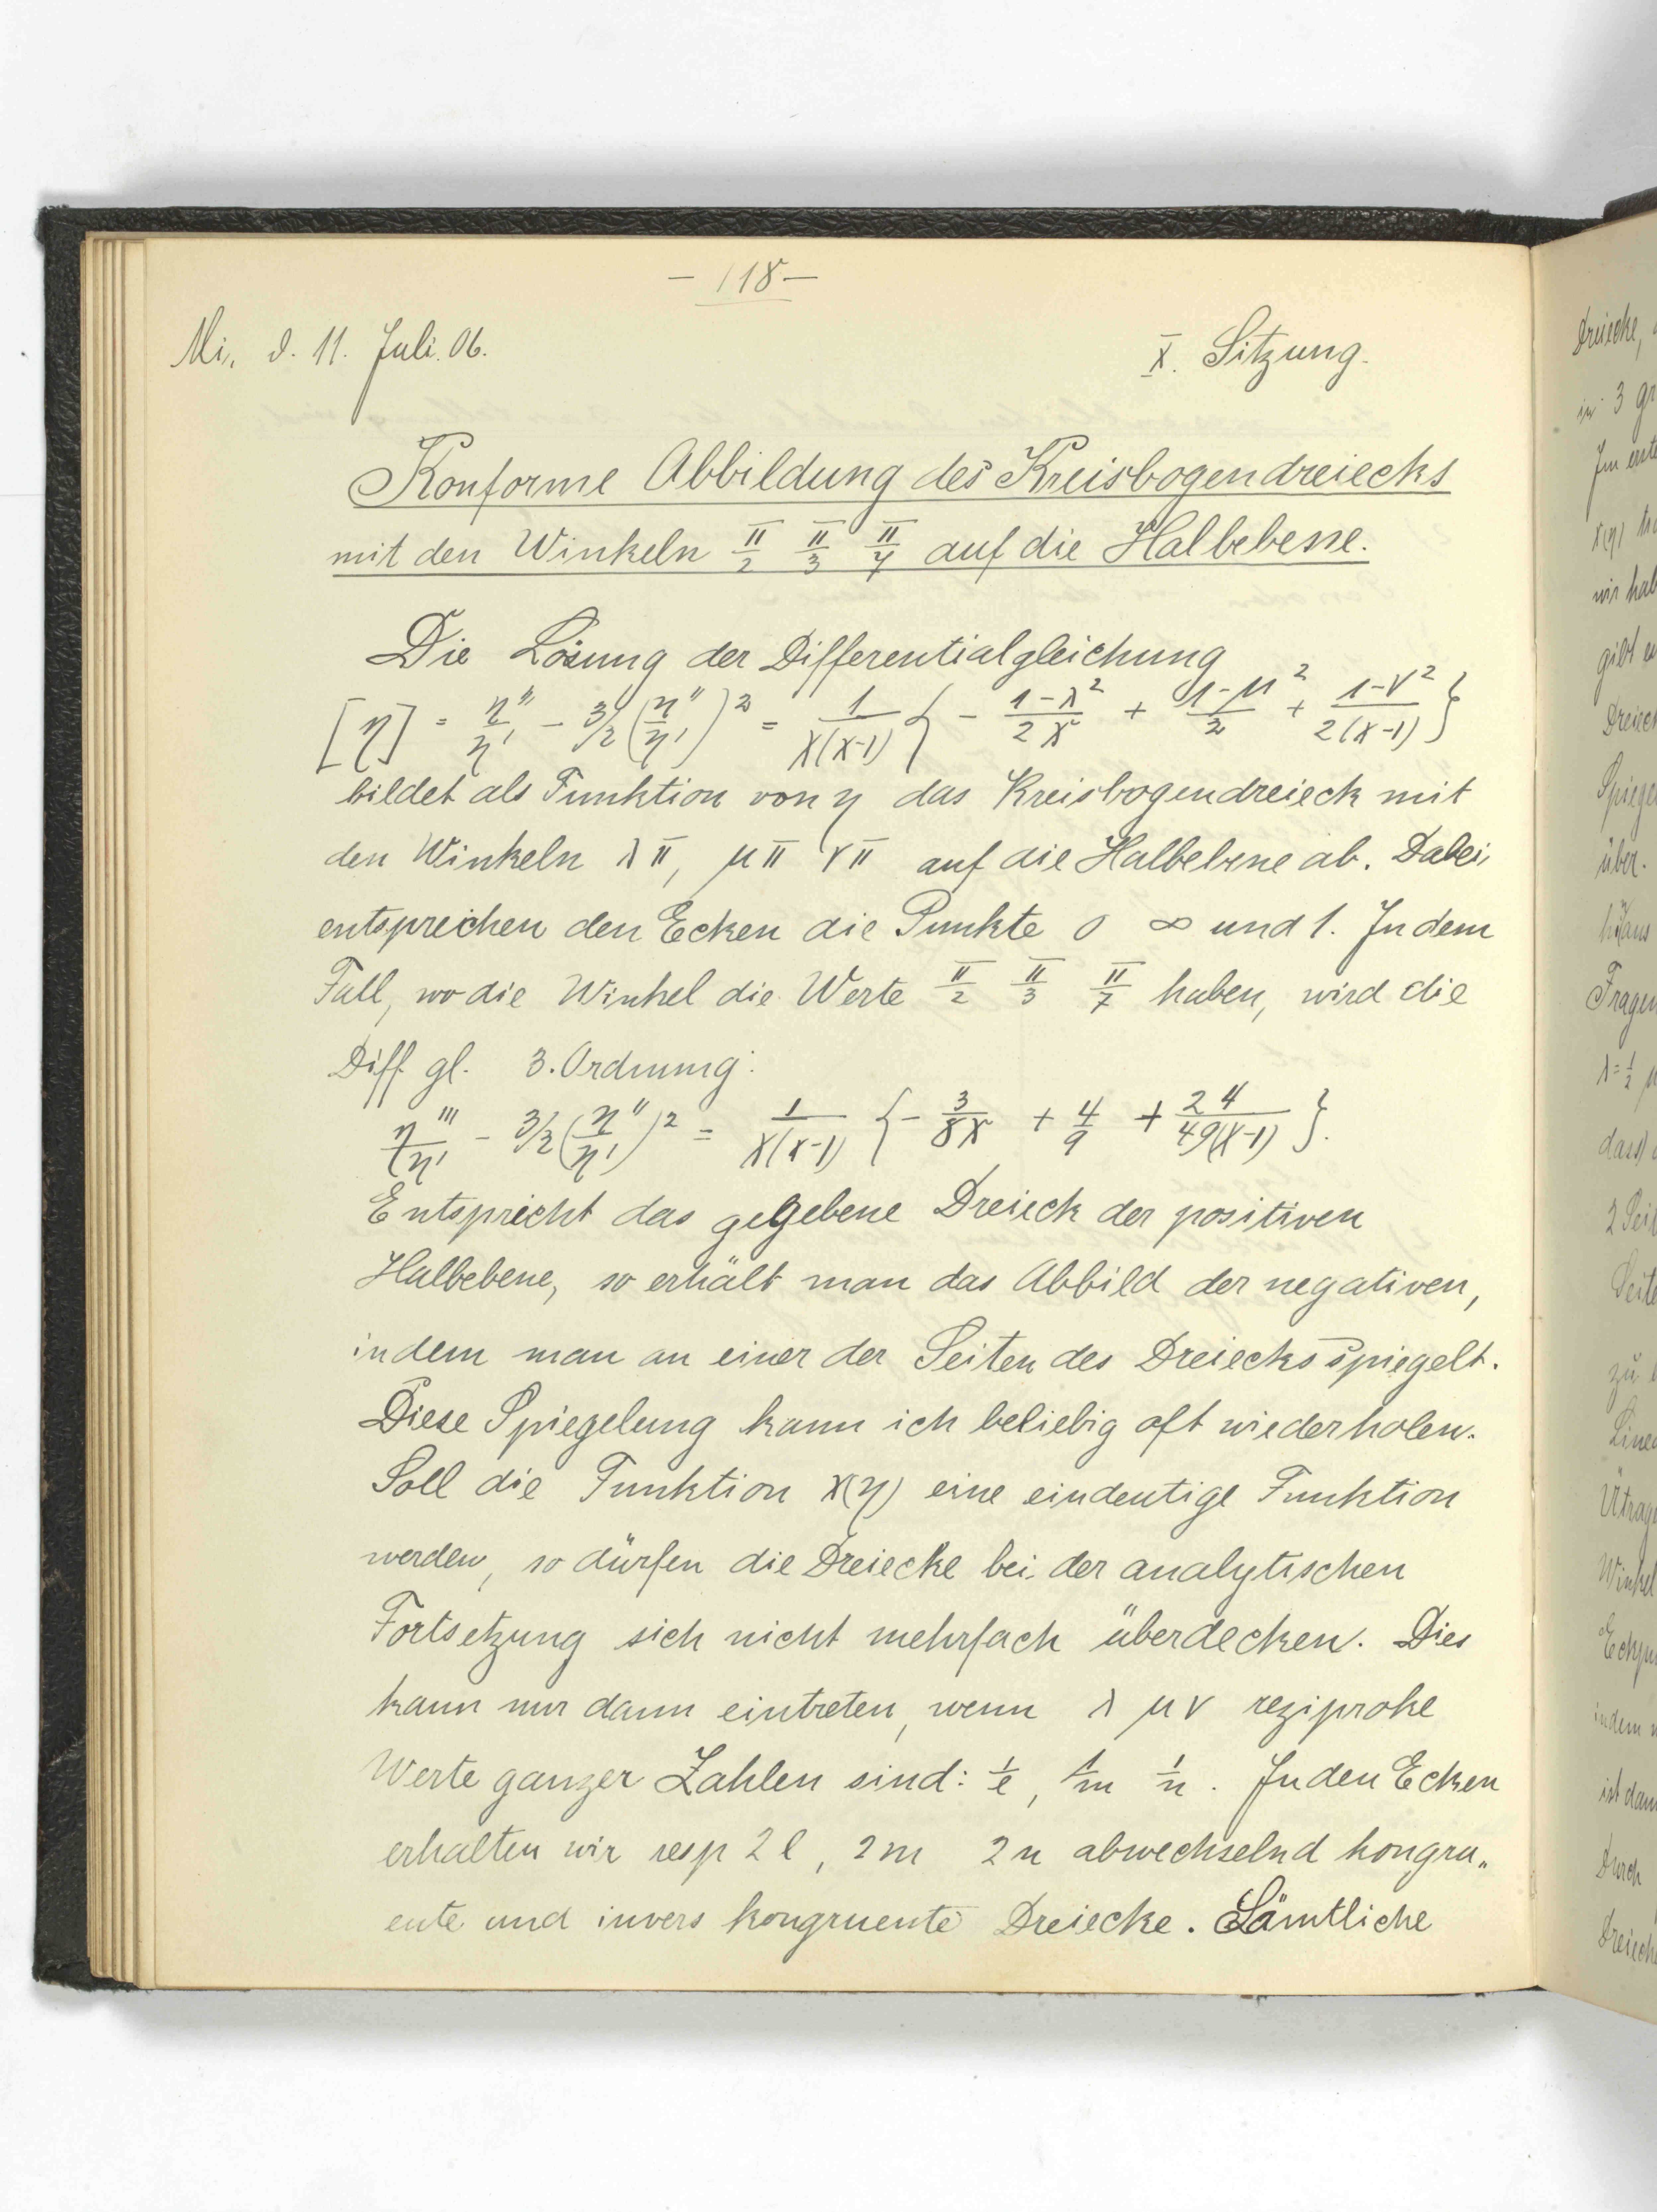 – 118 –
Mi, d. 11. Juli. 06. X. Sitzung.
Konforme Abbildung des Kreisbogendreiecks
mit den Winkeln π/2 π/3 π/7 auf die Halbebene.
Die Lösung der Differentialgleichung
[η] = η''/η' - 3/2 (η''/η')² = 1/x(x-1) { - 1-λ²/2x + 1-μ²/2 + 1-ν²/2(x-1) }
bildet als Funktion von η das Kreisbogendreieck mit
den Winkeln λπ, μπ νπ auf die Halbebene ab. Dabei
entsprechen den Ecken die Punkte 0 ∞ und 1. In dem
Fall, wo die Winkel die Werte π/2 π/3 π/7 haben, wird die
Diff. gl. 3. Ordnung:
η'''/η' - 3/2 (η''/η')² = 1/x(x-1) { - 3/8x + 4/9 + 24/49(x-1) }.
Entspricht das gegebene Dreieck der positiven
Halbebene, so erhält man das Abbild der negativen,
indem man an einer der Seiten des Dreiecks spiegelt.
Diese Spiegelung kann ich beliebig oft wiederholen.
Soll die Funktion x(η) eine eindeutige Funktion
werden, so dürfen die Dreiecke bei der analytischen
Fortsetzung sich nicht mehrfach überdecken. Dies
kann nur dann eintreten, wenn λ μ ν reziproke
Werte ganzer Zahlen sind: 1/l, 1/m 1/n. In den Ecken
erhalten wir resp 2l, 2m 2n abwechselnd kongru„
ente und invers kongruente Dreiecke. Sämtliche
Dreiecke,
in 3
x(η)
wir
Spiege
über.
Fragen
λ=1/2
dass
2 Seit
Seite
zu
Winkel
Eckpu
indem
ist dann
Durch
Dreieck